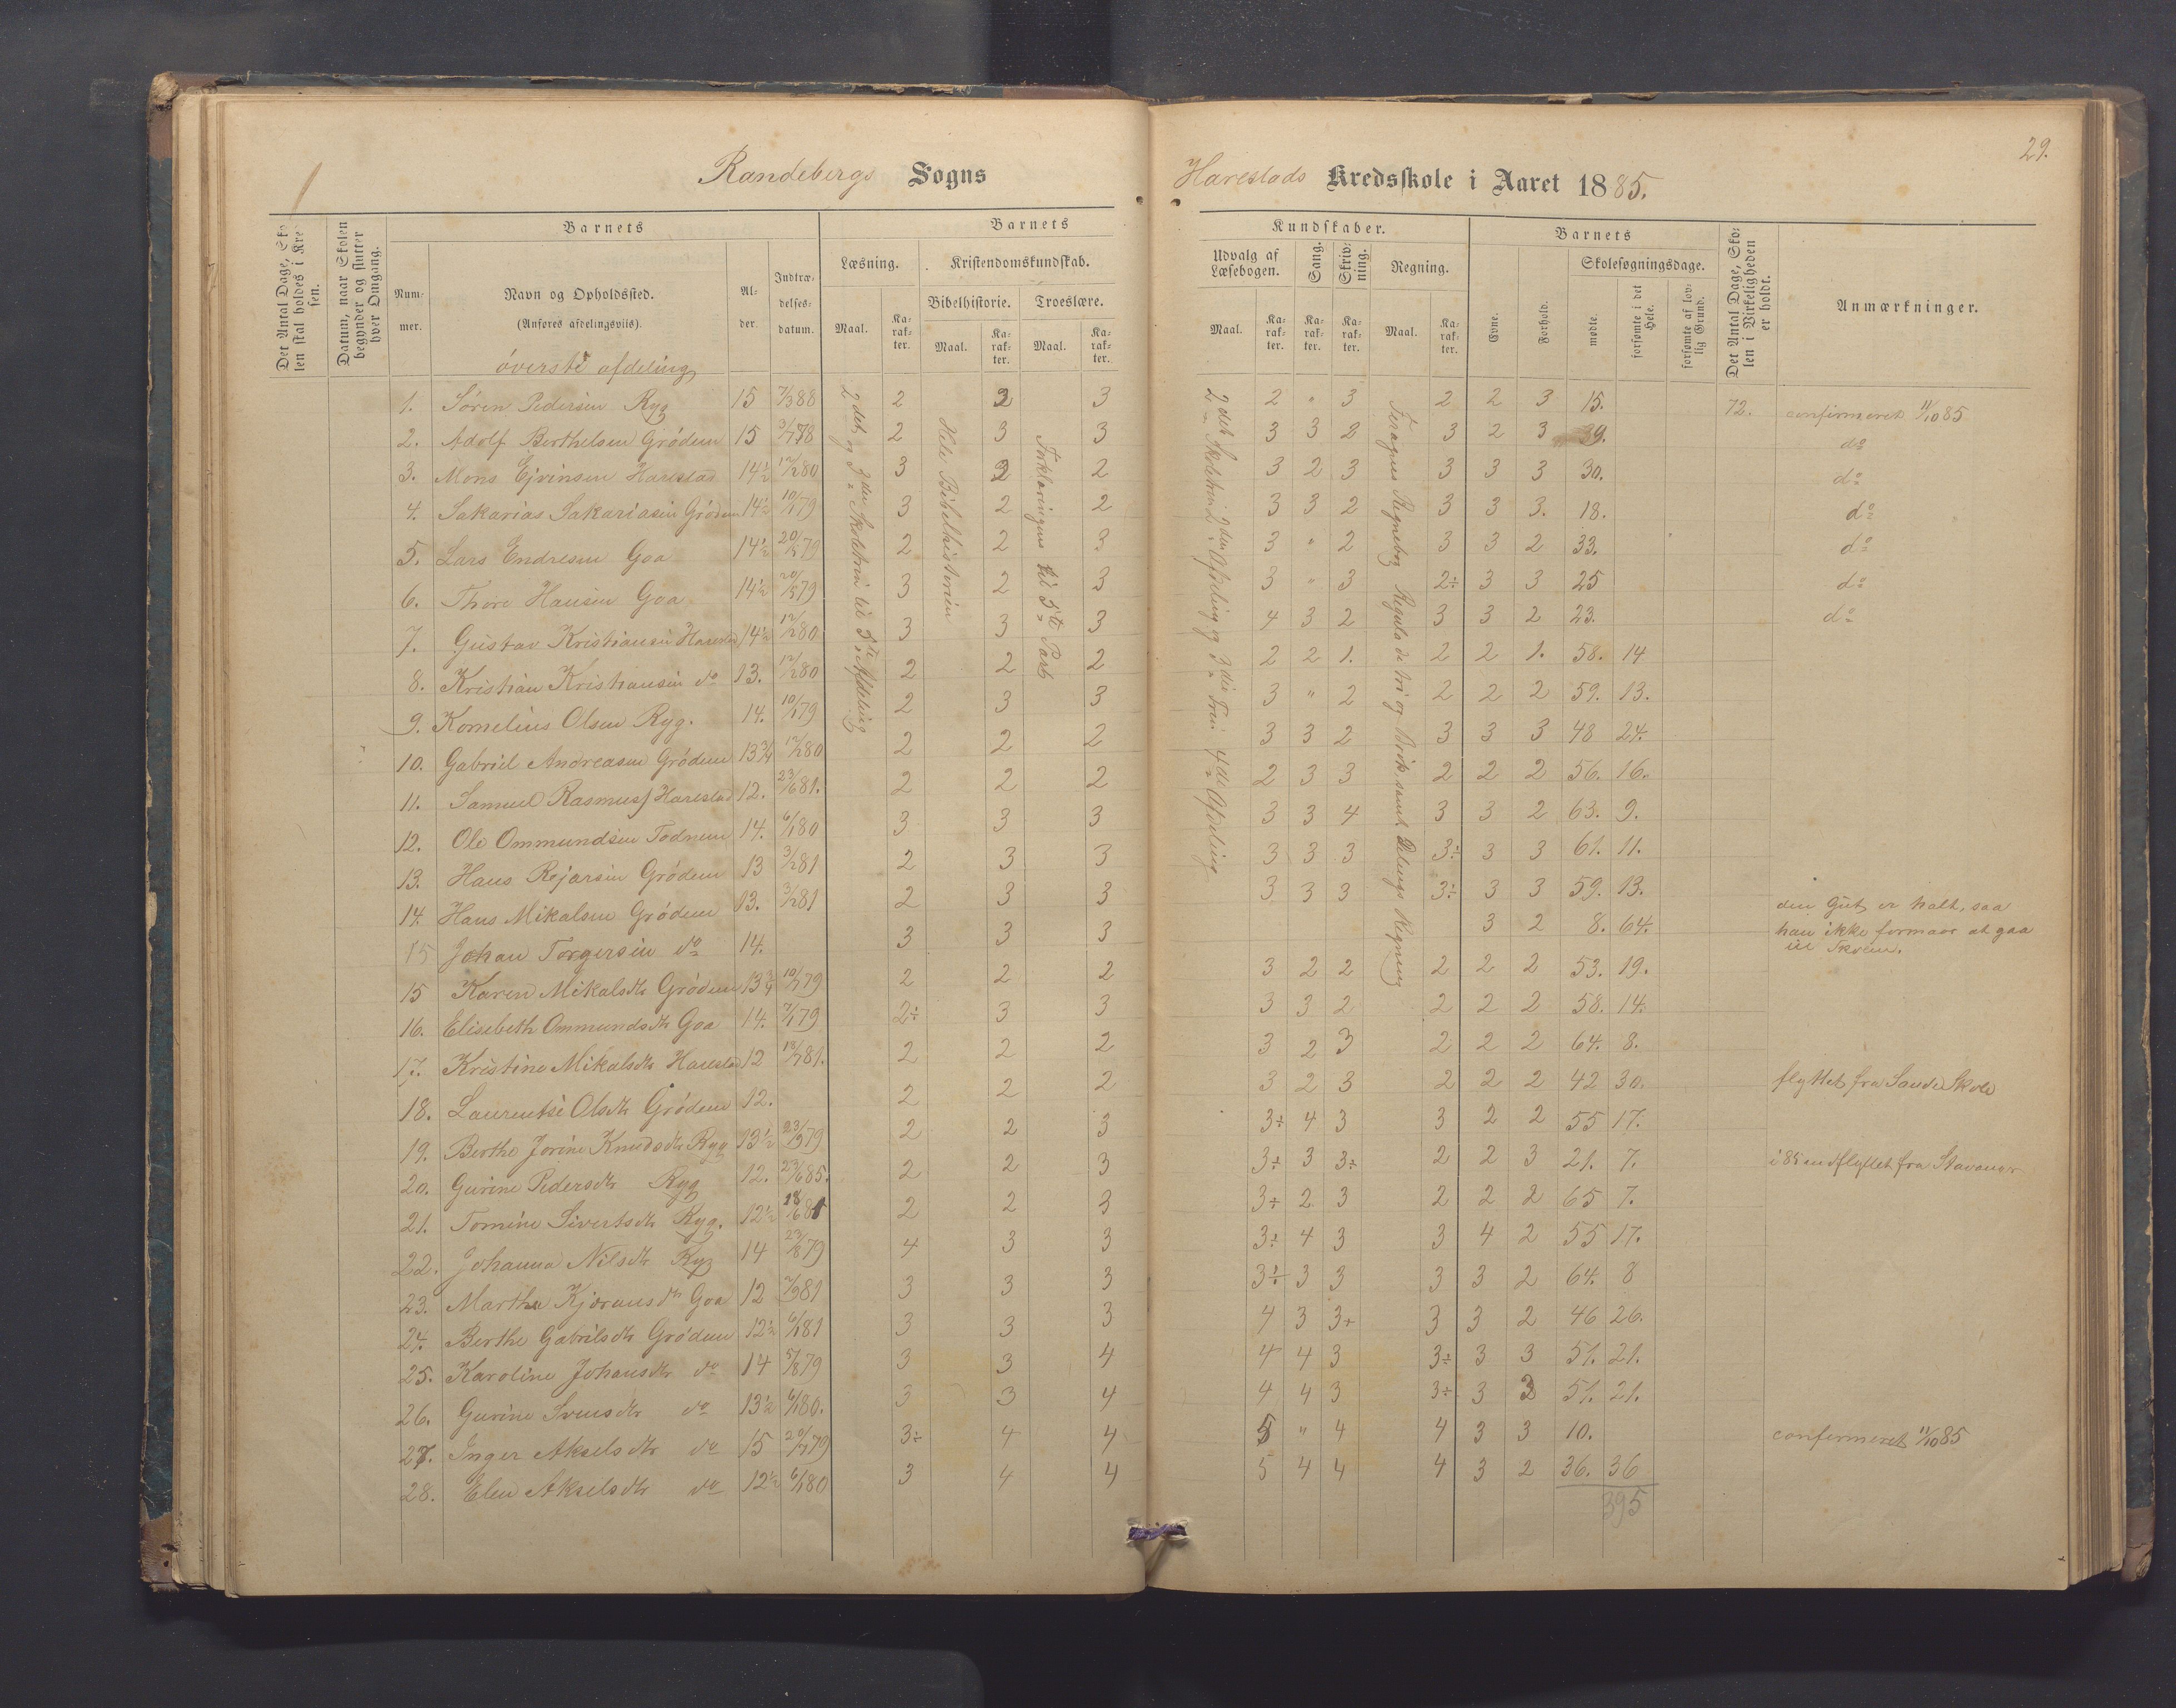 29.
Randebergs Sogns
Harestads Kredsskole i Aaret 1885.
Det Antal Dage, Sko-
len skal holdes i Kred-
sen.
Datum, naar Skolen
begynder og slutter
hver Omgang.
Barnets
Num-
mer.
Navn og Opholdssted.
(Anføres afdelingsviis).
Al-
der.
Indtræ-
delses-
datum.
Barnets
Læsning.
Kristendomskundskab.
Bibelhistorie.
Troeslære.
Maal.
Ka-
rak-
ter.
Maal.
Ka-
rak-
ter.
Maal.
Ka-
rak-
ter.
Kundskaber.
Udvalg af
Læsebogen.
Sang.
Skriv-
ning.
Regning.
Maal.
Ka-
rak-
ter.
Ka-
rak-
ter.
Ka-
rak-
ter.
Maal.
Ka-
rak-
ter.
Barnets
Evne.
Forhold.
Skolesøgningsdage.
mødte.
forsømte i det
Hele.
forsømte af lov-
lig Grund.
Det Antal Dage, Sko-
len i Virkeligheden
er holdt.
Anmærkninger.
øverste afdeling
2det og 3die Skoletrin til 5te Afdeling
Hele Bibelhistorien
Forklaringens til 5te Part
2det Skoletrin 2den Afdeling og 3die Trin 4de Afdeling
Regnebog Regula de tri og Brøk, samt Regning
1. Søren Pedersen Ryg 15 2 3 3 2 " 3 2 2 3 15. 72. confirmeret 11/10 85
2. Adolf Berthelsen Grödem 15 2 3 3 3 3 2 3 2 3 39. do
3. Mons Ejvinsen Harestad 14½ 12/1 80 3 2 2 3 2 3 3 3 3 30. do
4. Sakarias Sakariasen Grödem 14½ 10/1 79 3 2 2 3 3 2 3 3 3. 18. do
5. Lars Endresen Goa 14½ 2 2 3 3 " 2 3 3 2 33. do
6. Thore Hansen Goa 14½ 20/5 79 3 2 3 3 " 3 2÷ 3 3 25 do
7. Gustav Kristiansen Harestad 14½ 12/1 80 3 3 3 4 3 2 3 3 2 23. do
8. Kristian Kristiansen do 13. 12/1 80 2 2 2 2 2 1. 2 2 1. 58. 14
9. Kornelius Olsen Ryg. 14. 10/1 79 2 3 3 3 " 2 2 2 2 59. 13.
10. Gabriel Andreasen Grödem 13¾ 12/1 80 2 2 2 3 3 2 3 3 3 48 24.
11. Samuel Rasmuss Harestad 12. 23/6 81. 2 2 2 2 3 3 2 2 2 56. 16.
12. Ole Ommundsen Todnem 14. 6/1 80 3 3 3 3 3 4 3 3 2 63. 9.
13. Hans Rejarsen Grödem 13 3/1 81 2 3 3 3 3 3 3÷ 3 3 61. 11.
14. Hans Mikalsen Grödem 13. 3/1 81 2 3 3 3 3 3 3÷ 3 3 59. 13.
15 Johan Torgersen do 14. 3 3 3 3 2 8. 64. den Gut er halt, saa
han ikke formaar at gaa
til Skolen.
15 Karen Mikalsdtr Grödem 13¾ 10/1 79 2 2 2 3 2 2 2 2 2 53. 19.
16. Elisebeth Ommundsdtr Goa 14. 7/1 79 2÷ 3 3 3 3 2 2 2 2 58. 14.
17. Kristine Mikalsdtr Harestad 12 2 2 2 3 2 3 2 2 2 64. 8.
18. Laurentse Olsdtr Grödem 12. 2 2 2 3 2 3 2 2 2 42 30. flyttet fra Sande Skole
19. Berthe Jorine Knudsdtr Ryg 13½ 2 2 3 3÷ 4 3 3 2 2 55 17.
20. Gurine Pedersdtr Ryg 12. 23/6 85. 2 2 3 3÷ 3 3÷ 2 2 3 21. 7. i 85 indflyttet fra Stavanger
21. Tomine Sivertsdtr Ryg. 12½ 2 2 3 3÷ 2 3 2 2 2 65 7.
22. Johanna Nilsdtr Ryg 14 23/8 79 4 3 3 3÷ 4 3 3 4 2 55 17.
23. Martha Kjøransdtr Goa 12 3 3 3 3÷ 3 3 3 3 2 64. 8
24. Berthe Gabrilsdtr Grödem 12½ 6/1 81 3 3 3 4 3 3+ 3 3 2 46 26.
25. Karoline Johansdtr do 14 5/8 79 3 3 4 4 4 3 3÷ 3 3 51. 21.
26. Gurine Svensdtr do 13½ 6/1 80. 3 3 4 4 4 3 3÷ 3 3 51. 21.
27. Inger Akselsdtr do 15 3÷ 4 4 5 " 4 4 3 3 10. confirmeret 11/10 85
28. Elen Akselsdtr do 12½ 6/1 80 3 4 4 5 4 4 4 3 2 36. 36
395